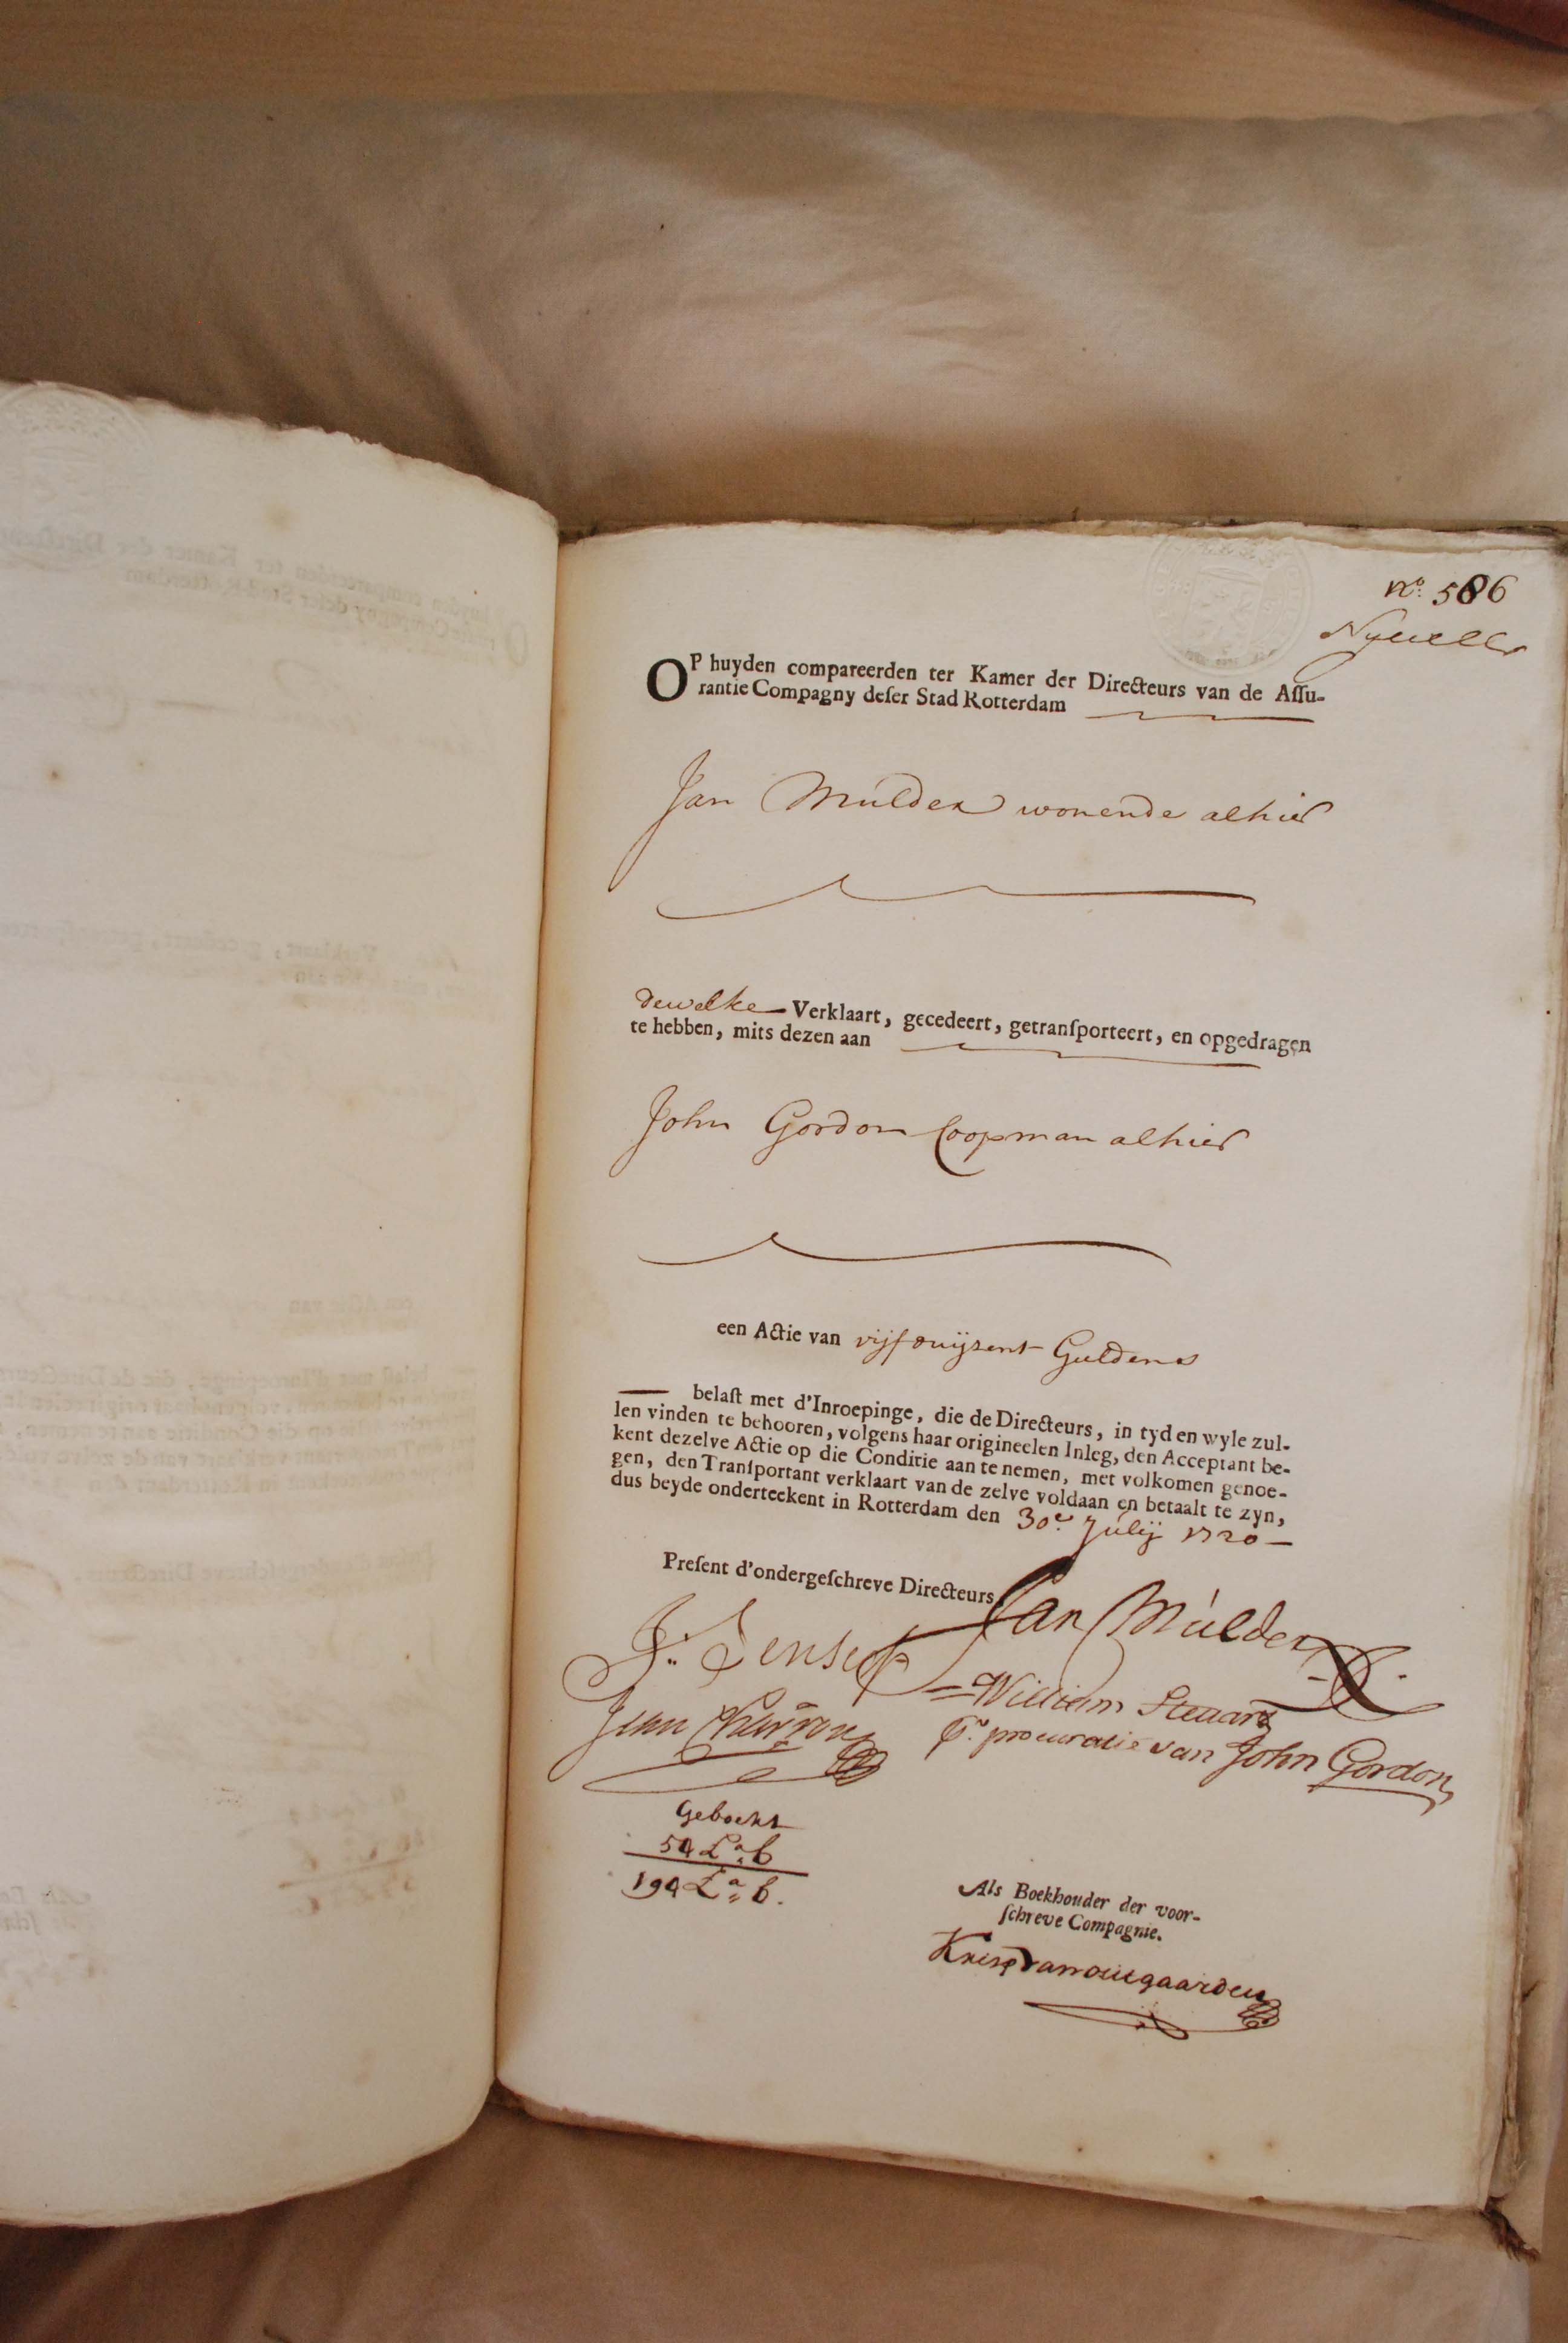 No. 586
OP huyden compareerden ter Kamer der Directeurs van de Aſſu-
rantie Compagny deſer Stad Rotterdam
Jan Mulder wonende alhier
dewelke Verklaart, gecedeert, getranſporteert, en opgedragen
te hebben, mits dezen aan
John Gordon Coopman alhier
een Actie van vijfduijsent Guldens
belaſt met d'Inroepinge, die de Directeurs, in tyd en wyle zul-
len vinden te behooren, volgens haar origineelen Inleg, den Acceptant be-
kent dezelve Actie op die Conditie aan te nemen, met volkomen genoe-
gen, den Tranſportant verklaart van de zelve voldaan en betaalt te zyn,
dus beyde onderteekent in Rotterdam den 30e July 1720
Preſent d'ondergeſchreve Directeurs
Jan Mulder
William Steuart
pr. procuratie van John Gordon
Jean
Geboekt
54 La b
194 La b.
Als Boekhouder der voor-
ſchreve Compagnie.